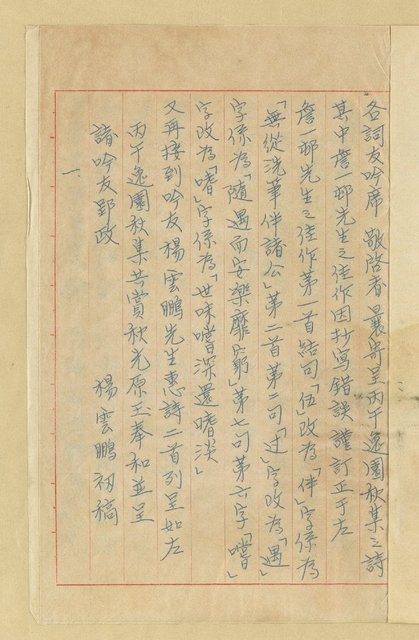 各詞友吟席 敬啓者 曩寄呈丙午逸園秋集之詩
其中詹一邨先生之佳作因抄寫錯誤謹訂正于左
詹一邨先生之佳作第一首結句「伍」改為「伴」字係為
「無從洗筆伴諸公」第二首第二句「过」字改為「遇」
字係為「隨遇而安樂靡窮」第七句第六字「嚐」
字改為「嗜」字係為「世味嚐深還嗜淡」
又再接到吟友楊雲鵬先生惠詩二首列呈如左
丙午逸園秋集共賞秋光原玉奉和並呈
諸吟友郢政 楊雲鵬初稿
一、